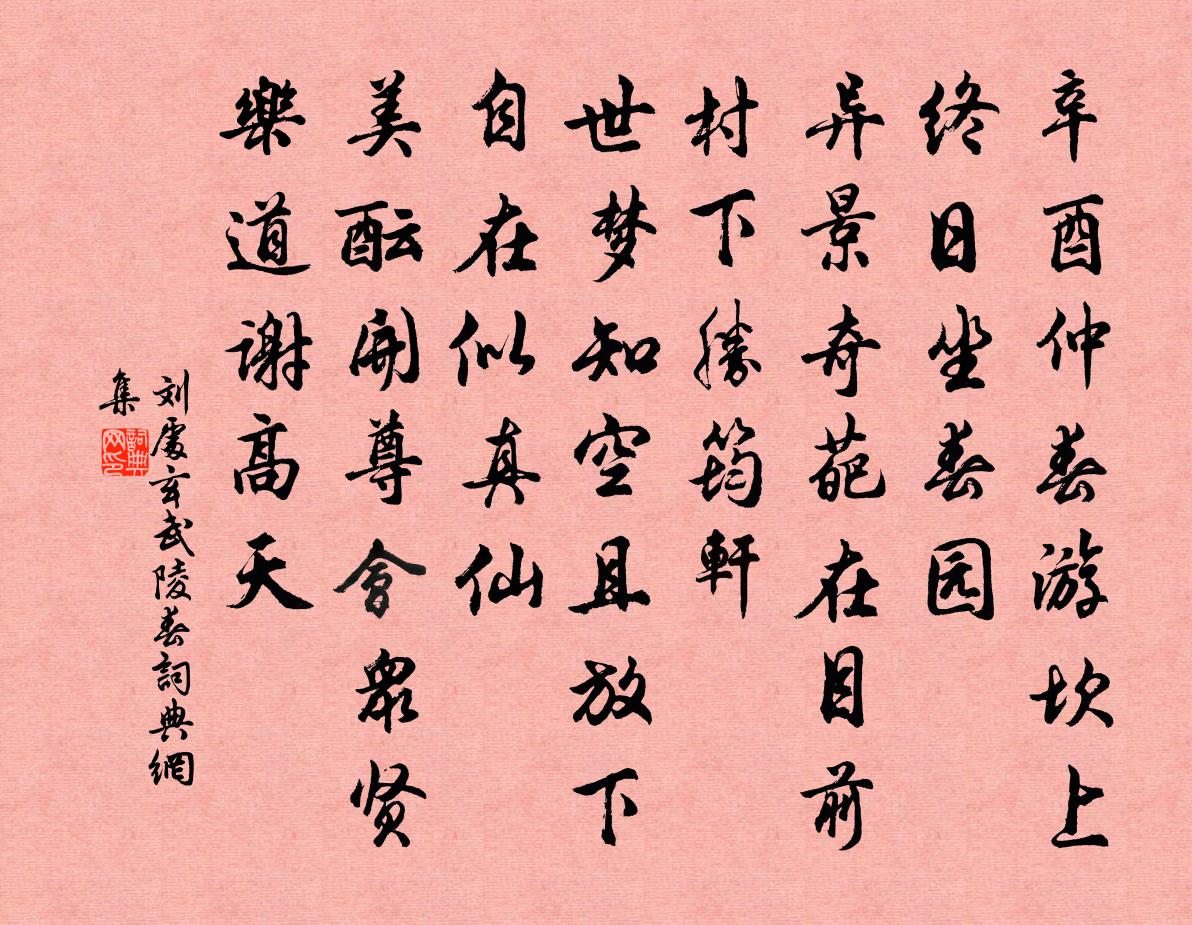 辛酉仲春游坎上
终日坐春园
异景奇葩在目前
村下胜筠軒
世梦知空且放下
自在似真仙
美酝開尊會眾贤
樂道谢高天
刘處玄武陵春詞典網
集
詞典
网印